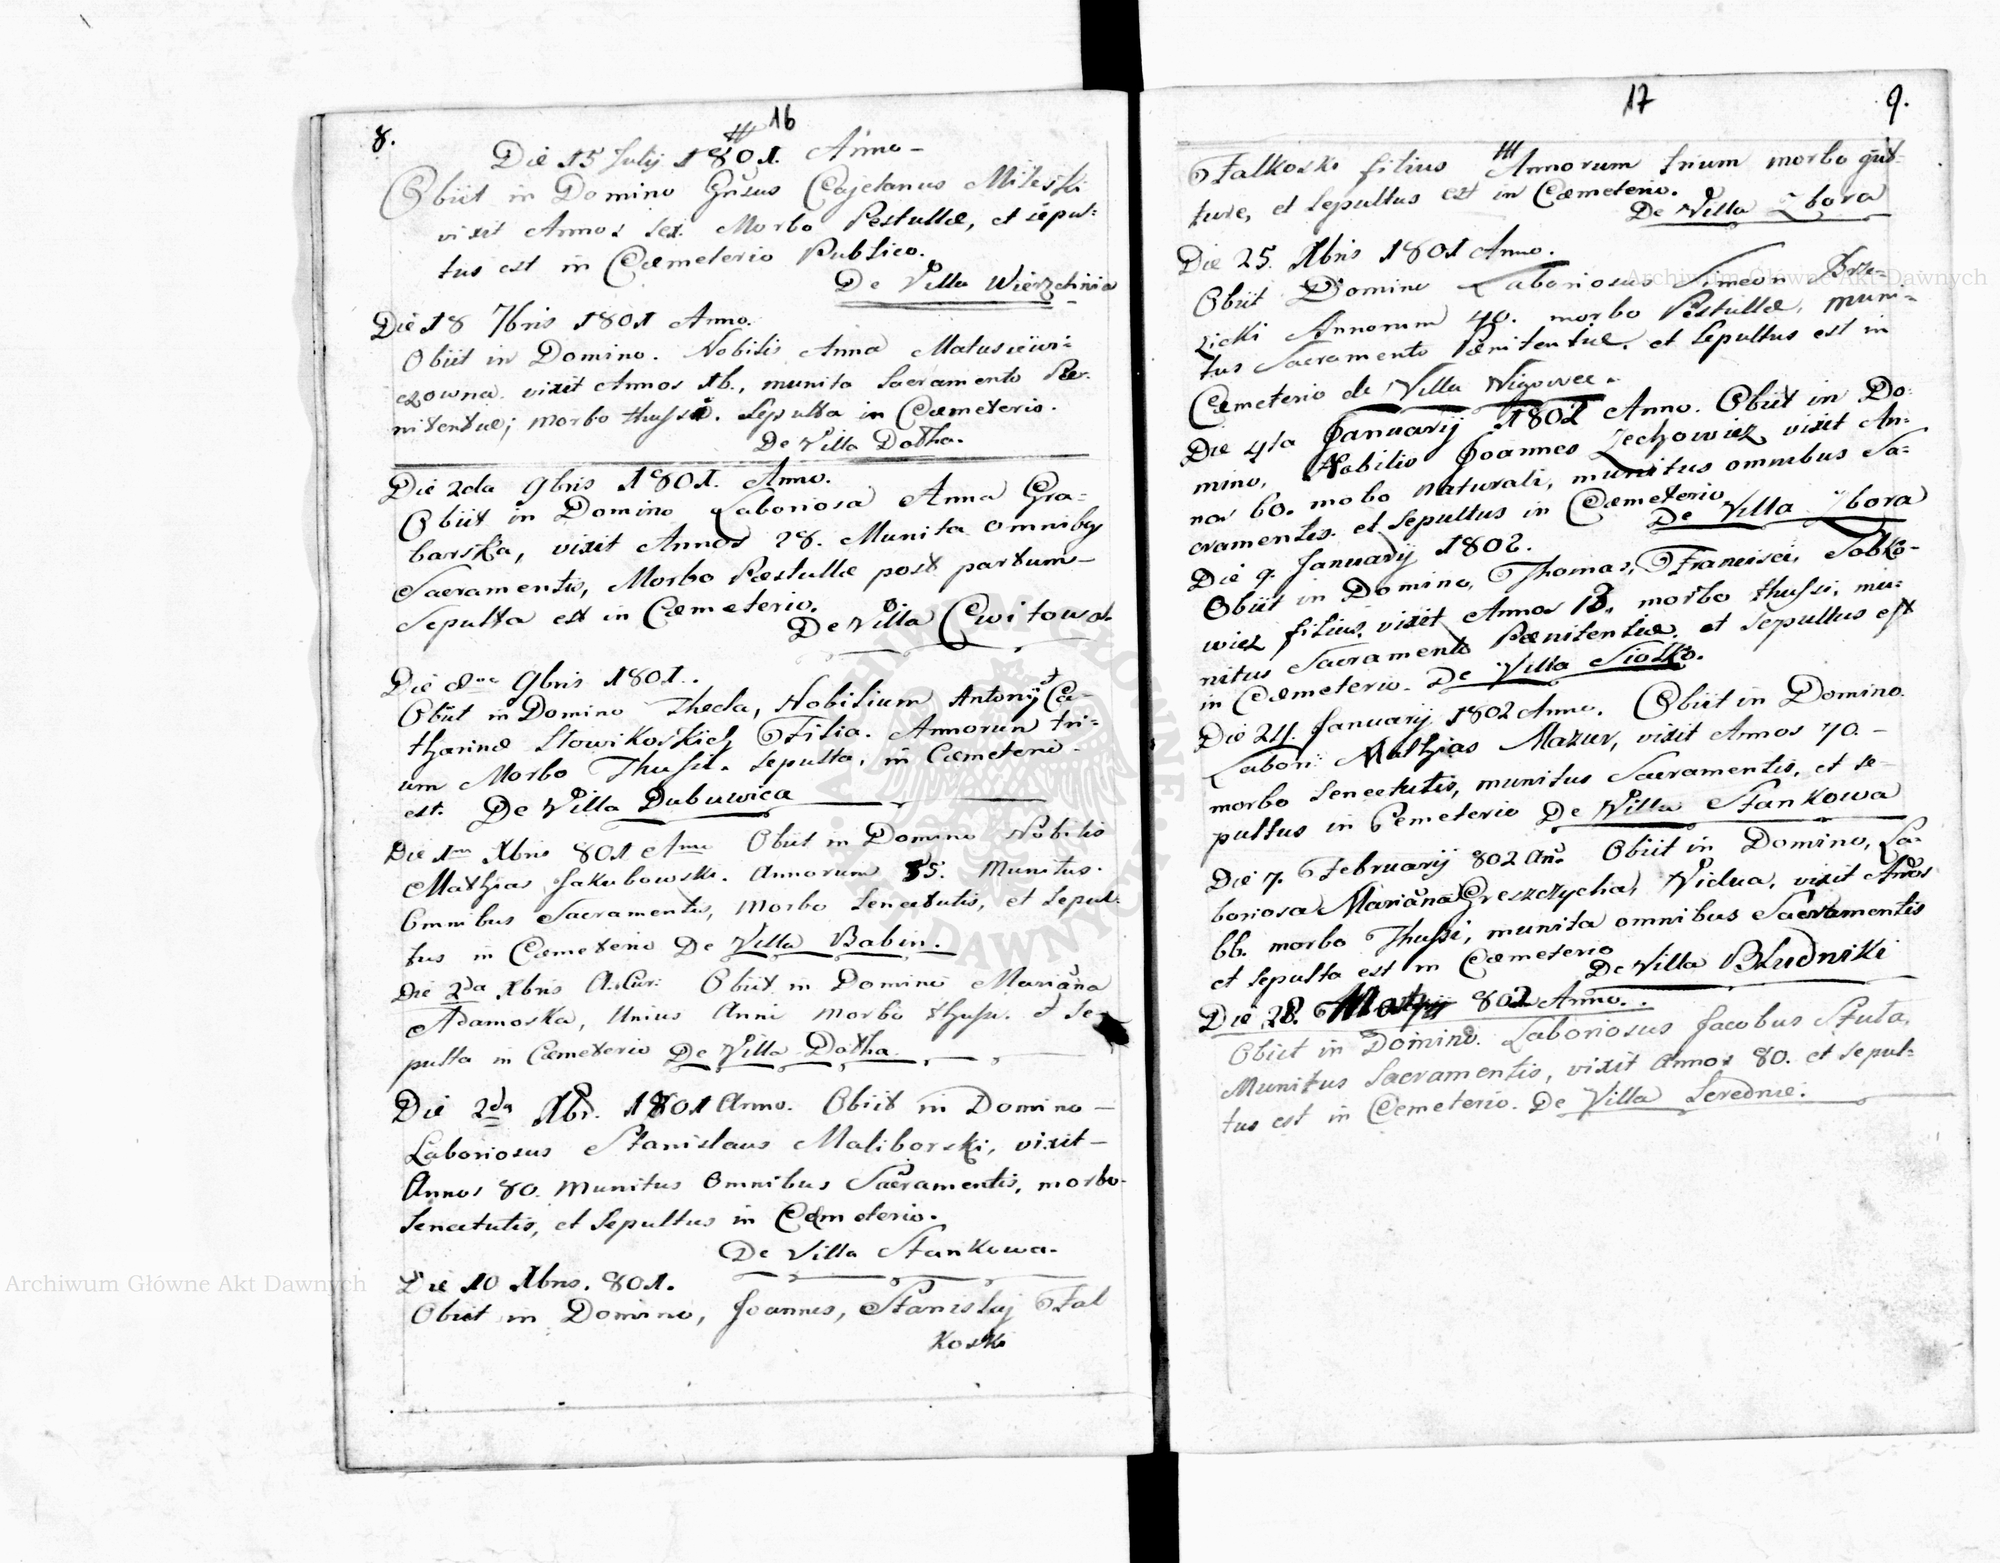 8.
16
Die 15 Julij 1801. Anno -
Obiit in Domino Gnsus Cajetanus Mileski
vixit Annos sex. Morbo Pestullæ, et sepul=
tus est in Cæmeterio Publico.
De Villa Wierzchnia
Die 18 7bris 1801 Anno.
Obiit in Domino. Nobilis Anna Matusiewi=
czowna vixit Annos 16., munita Sacramento Pœ=
nitentiæ; morbo thussi. Sepulta in Cæmeterio.
De Villa Dołha.
Die 2da 9bris 1801. Anno.
Obiit in Domino Laboriosa Anna Gra=
barska, vixit Annos 28. Munita omnibq
Sacramentis, Morbo Pæstullæ post partum -
Sepulta est in Cæmeterio.
De Villa Cwitowa.
Die 9bris 1801.
Obiit in Domino Thecla, Nobilium Antonij et Ca-
tharinæ Słowikoskich Filia. Annorum tri=
um Morbo Thussi. Sepulta, in Cæmeterio
est. De Villa Dubowica
Die 1ma Xbris 801 Anno Obiit in Domino Nobilis
Mathias Jakubowski. Annorum 85. Munitus.
Omnibus Sacramentis, Morbo Senectutis, et Sepul=
tus in Cæmeterio De Villa Babin.
Die 2da Xbris A. Cur: Obiit in Domino Mariana
Adamoska, Unius Anni morbo thussi. et Se-
pulta in Cæmeterio De Villa Dołha
Die 2da Xbr. 1801 Anno. Obiit in Domino -
Laboriosus Stanislaus Maliborski, vixit -
Annos 80. Munitus Omnibus Sacramentis, morbo
Senectutis, et Sepultus in Cæmeterio.
De Villa Stankowa.
Die 10 Xbris. 801.
Obiit in Domino, Joannes, Stanislaj Fal
koski
17
9.
Falkoski filius Annorum trium morbo gut-
ture, et Sepultus est in Cæmeterio.
De Villa Zbora
Die 25. Xbris 1801 Anno.
Obiit Domino Laboriosus Simeon Brze=
zicki Annorum 40. morbo Pestullæ, muni=
tus Sacramento Pænitentiæ. et Sepultus est in
Cæmeterio de Villa Nigowce.
Die 4ta Januarij 1802 Anno. Obiit in Do-
mino, Nobilis Joannes Zechowicz vixit An-
nos 60. mobo naturali, munitus omnibus Sa=
cramentis. et Sepultus in Cæmeterio
De Villa Zbora
Die 9. Januarij 1802.
Obiit in Domino, Thomas, Francisci, Sobko-
wicz filius, vixit Annos 13. morbo thussi, mu=
nitus Sacramento Pænitentiæ. et Sepultus est
in Cæmeterio. De Villa Siołko.
Die 24. Januarij 1802 Anno. Obiit in Domino.
Labori: Mathias Mazur, vixit Annos 70. -
morbo Senectutis, munitus Sacramentis, et se-
pultus in Cemeterio De Villa Stankowa
Die 7. Februarij 802 Ano. Obiit in Domino, La-
boriosa Mariana Greszczycha, Vidua, vixit Annos
66. morbo Thussi, munita omnibus Sacramentis
et Sepulta est in Cæmeterio
De Villa Bludniki
Die 28. 802 Anno.
Obiit in Domino. Laboriosus Jacobus Stuta,
Munitus Sacramentis, vixit Annos 80. et Sepul=
tus est in Cemeterio. De Villa Serednie.
Archiwum Główne Akt Dawnych
Archiwum Główne Akt Dawnych
ARCHIWUM GŁÓWNE AKT DAWNYCH